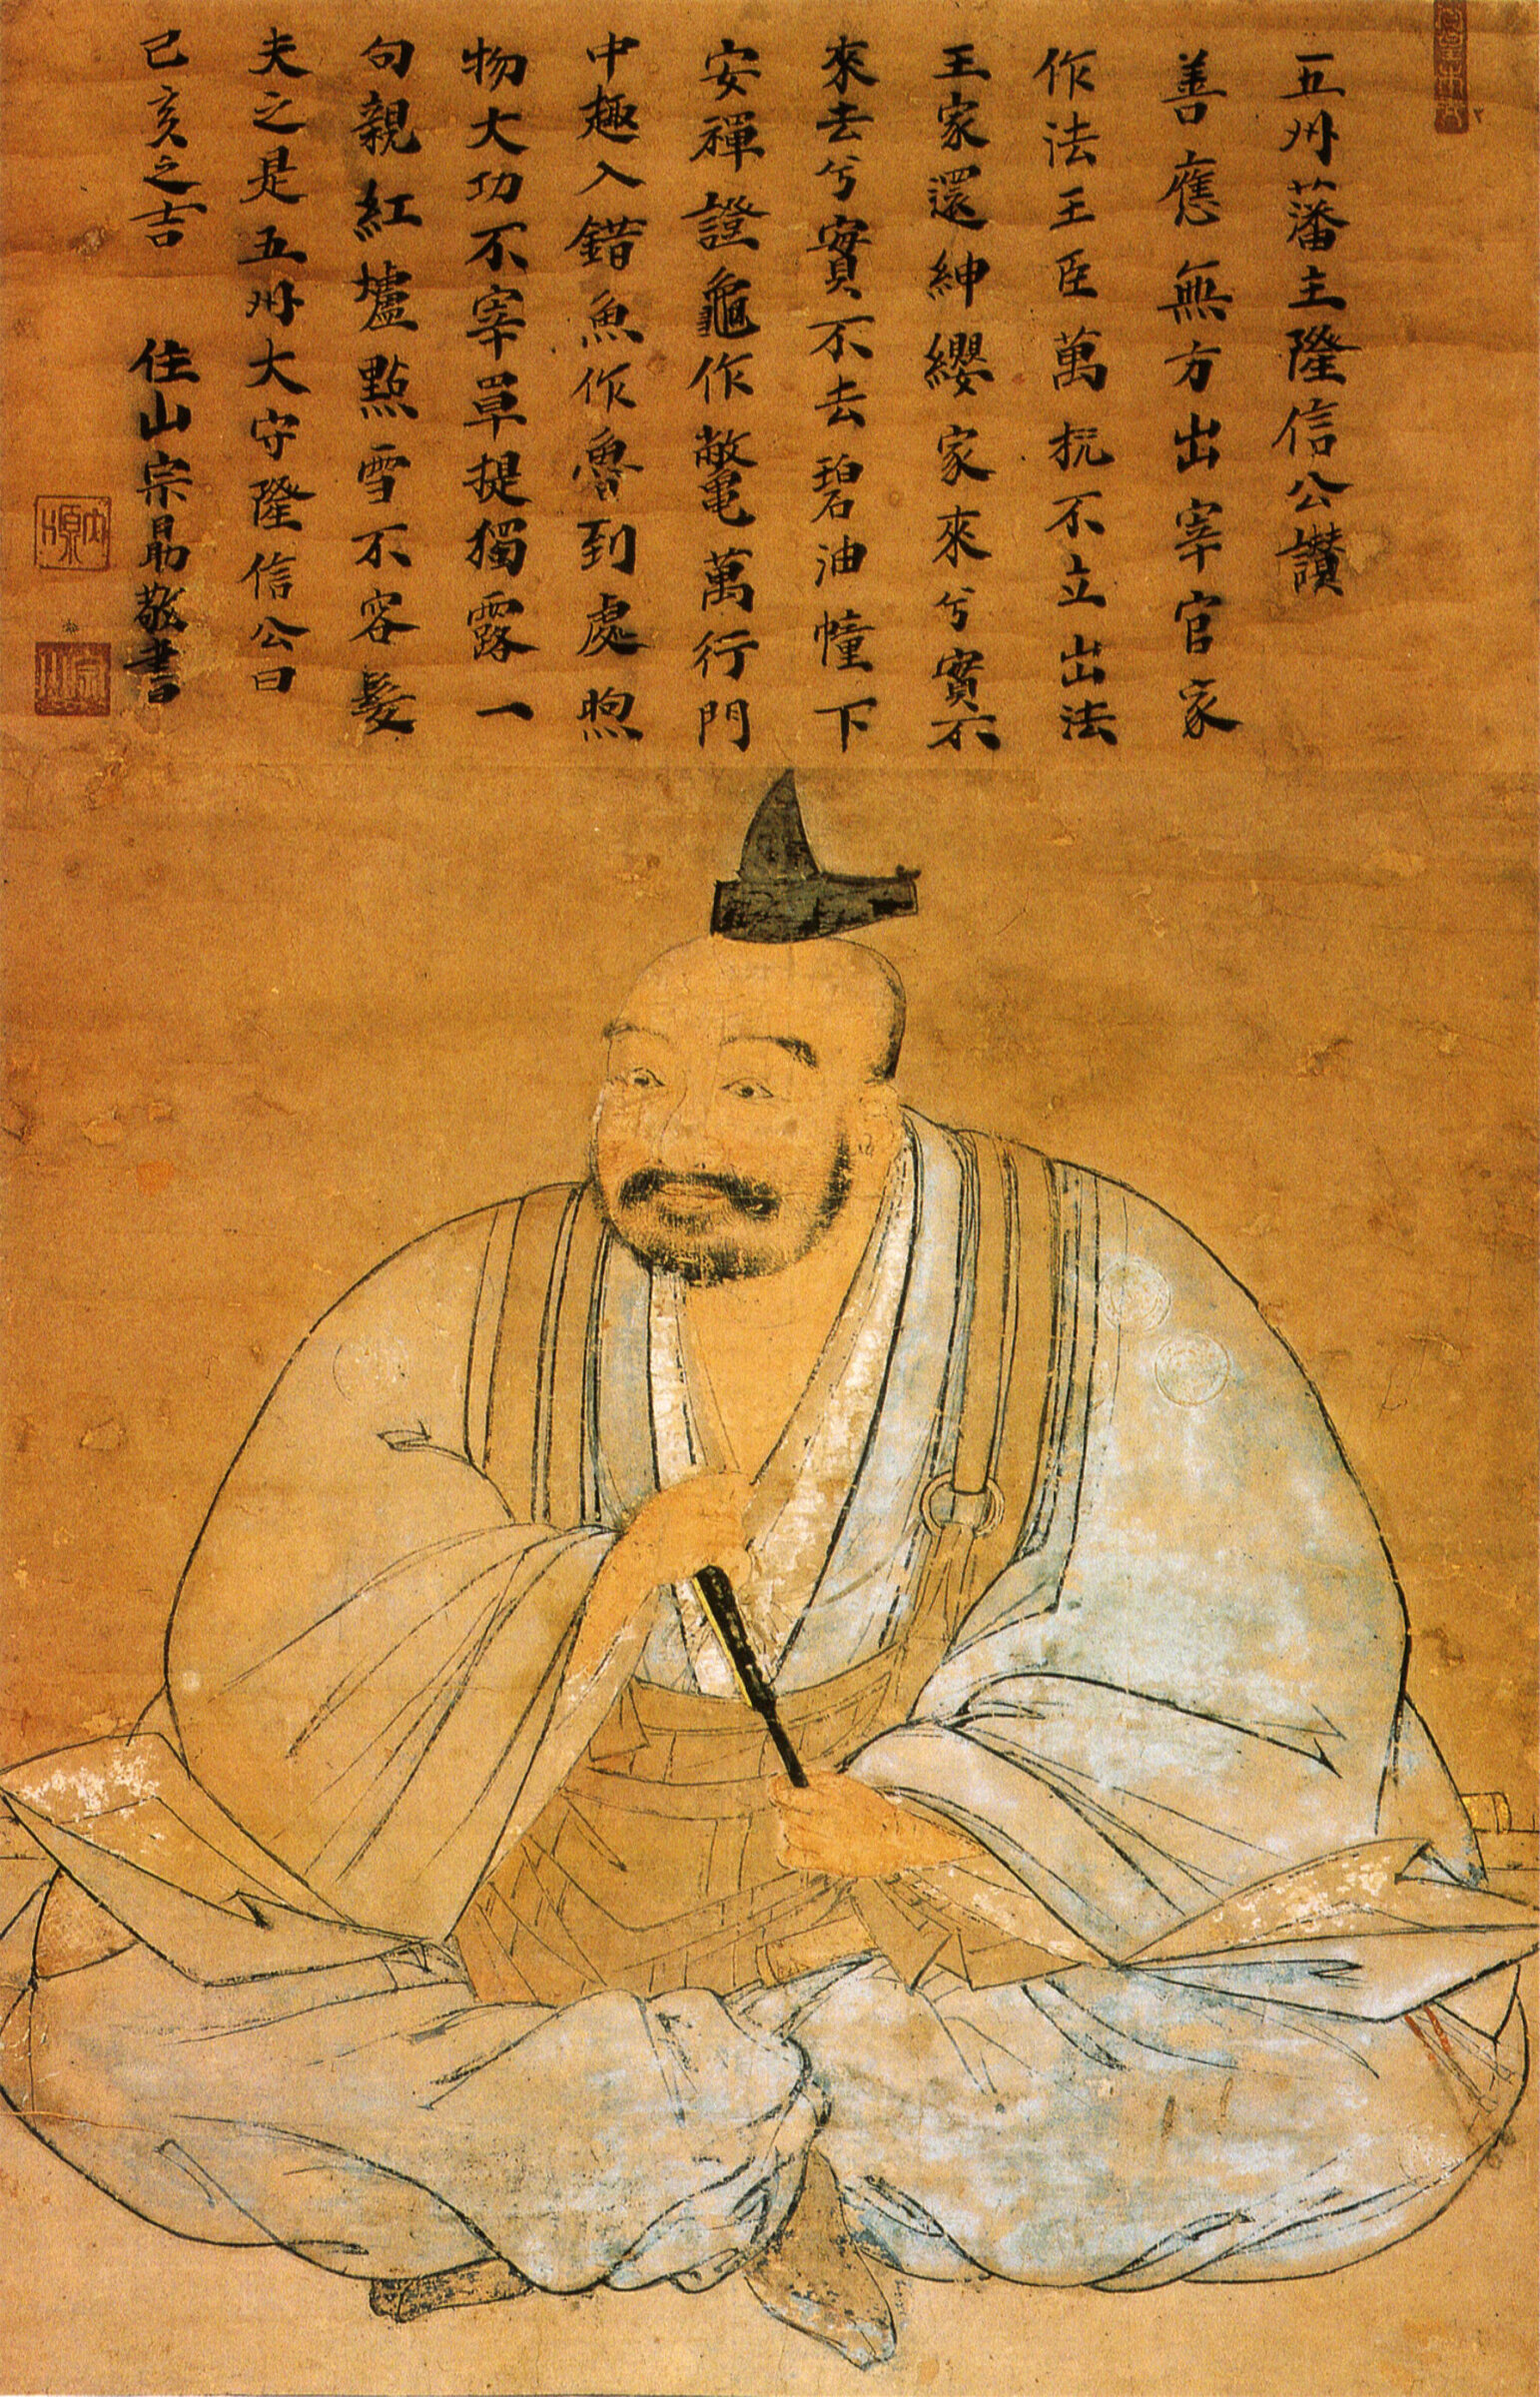 五州藩主隆信公讃
善應無方出宰官家
作法王臣萬机不立出法
王家還紳纓家來兮實不
來去兮實不去碧油幢下
安禪證龜作鼈萬行門
中趣入錯魚作魯到處煦
物大功不宰單提獨露一
句親紅爐點雪不容髮
夫之是五州大守隆信公曰
己亥之吉 住山宗勗敬書